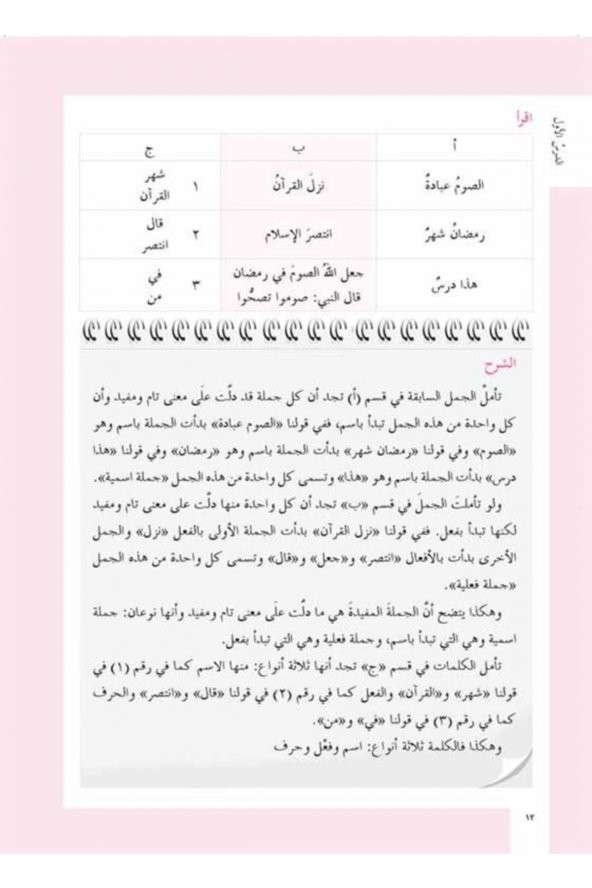 الدرسُ الأول
اقرأ
أ ب ج
الصومُ عبادةٌ نزلَ القرآنُ ١ شهر
القرآن
رمضانُ شهرٌ انتصرَ الإسلام ٢ قال
انتصر
هذا درسٌ جعل اللهُ الصومَ في رمضان ٣ في
قال النبي: صوموا تصحُّوا من
الشرح
تأملْ الجمل السابقة في قسم (أ) تجد أن كل جملة قد دلّت علَى معنى تام ومفيد وأن
كل واحدة من هذه الجمل تبدأ باسم، ففي قولنا «الصوم عبادة» بدأت الجملة باسم وهو
«الصوم» وفي قولنا «رمضان شهر» بدأت الجملة باسم وهو «رمضان» وفي قولنا «هذا
درس» بدأت الجملة باسم وهو «هذا» وتسمى كل واحدة من هذه الجمل «جملة اسمية».
ولو تأملتَ الجملَ في قسم «ب» تجد أن كل واحدة منها دلّت على معنى تام ومفيد
لكنها تبدأ بفعل. ففي قولنا «نزل القرآن» بدأت الجملة الأولى بالفعل «نزل» والجمل
الأخرى بدأت بالأفعال «انتصر» و«جعل» و«قال» وتسمى كل واحدة من هذه الجمل
«جملة فعلية».
وهكذا يتضح أنَّ الجملةَ المفيدةَ هي ما دلّت علَى معنى تام ومفيد وأنها نوعان: جملة
اسمية وهي التي تبدأ باسم، وجملة فعلية وهي التي تبدأ بفعل.
تأمل الكلمات في قسم «ج» تجد أنها ثلاثة أنواع: منها الاسم كما في رقم (١) في
قولنا «شهر» و«القرآن» والفعل كما في رقم (٢) في قولنا «قال» و«انتصر» والحرف
كما في رقم (٣) في قولنا «في» و«من».
وهكذا فالكلمة ثلاثة أنواع: اسم وفعْل وحرف
١٢